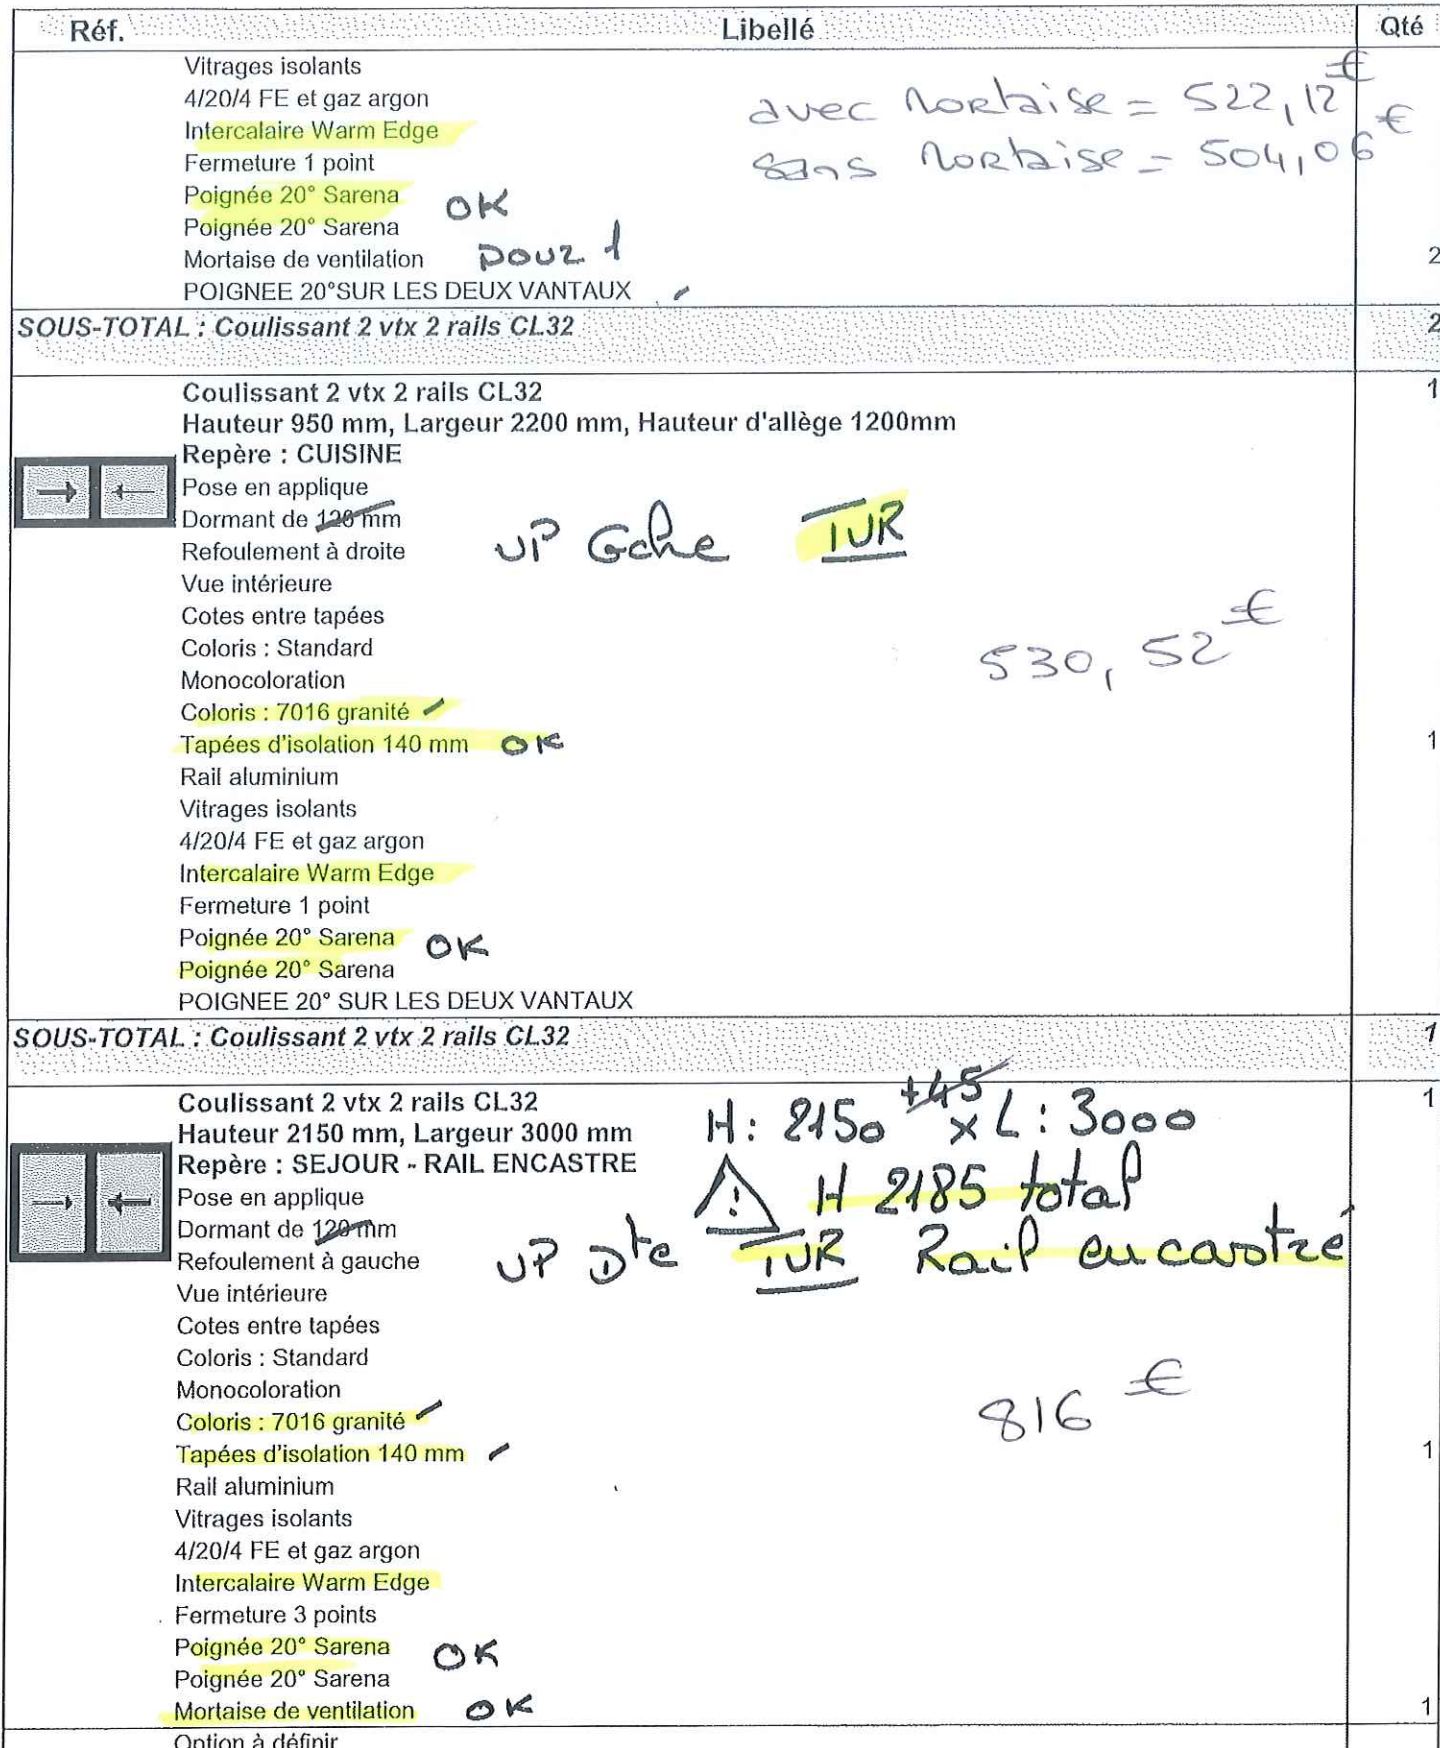 Réf. Libellé Qté
Vitrages isolants
4/20/4 FE et gaz argon
avec mortaise = 522,12 €
Intercalaire Warm Edge
sans mortaise = 504,06 €
Fermeture 1 point
Poignée 20° Sarena OK
Poignée 20° Sarena
Mortaise de ventilation pour 1 2
POIGNEE 20°SUR LES DEUX VANTAUX
SOUS-TOTAL : Coulissant 2 vtx 2 rails CL32 2
Coulissant 2 vtx 2 rails CL32 1
Hauteur 950 mm, Largeur 2200 mm, Hauteur d'allège 1200mm
Repère : CUISINE
Pose en applique
Dormant de 120 mm
Refoulement à droite VP Gche TVR
Vue intérieure
Cotes entre tapées
Coloris : Standard 530,52 €
Monocoloration
Coloris : 7016 granité
Tapées d'isolation 140 mm OK 1
Rail aluminium
Vitrages isolants
4/20/4 FE et gaz argon
Intercalaire Warm Edge
Fermeture 1 point
Poignée 20° Sarena OK
Poignée 20° Sarena
POIGNEE 20° SUR LES DEUX VANTAUX
SOUS-TOTAL : Coulissant 2 vtx 2 rails CL32 1
Coulissant 2 vtx 2 rails CL32 1
Hauteur 2150 mm, Largeur 3000 mm H: 2150 +45 x L: 3000
Repère : SEJOUR - RAIL ENCASTRE
Pose en applique ! H 2185 total
Dormant de 120 mm
Refoulement à gauche VP Dte TVR Rail encastré
Vue intérieure
Cotes entre tapées
Coloris : Standard
Monocoloration
Coloris : 7016 granité 816 €
Tapées d'isolation 140 mm 1
Rail aluminium
Vitrages isolants
4/20/4 FE et gaz argon
Intercalaire Warm Edge
Fermeture 3 points
Poignée 20° Sarena OK
Poignée 20° Sarena
Mortaise de ventilation OK 1
Option à définir